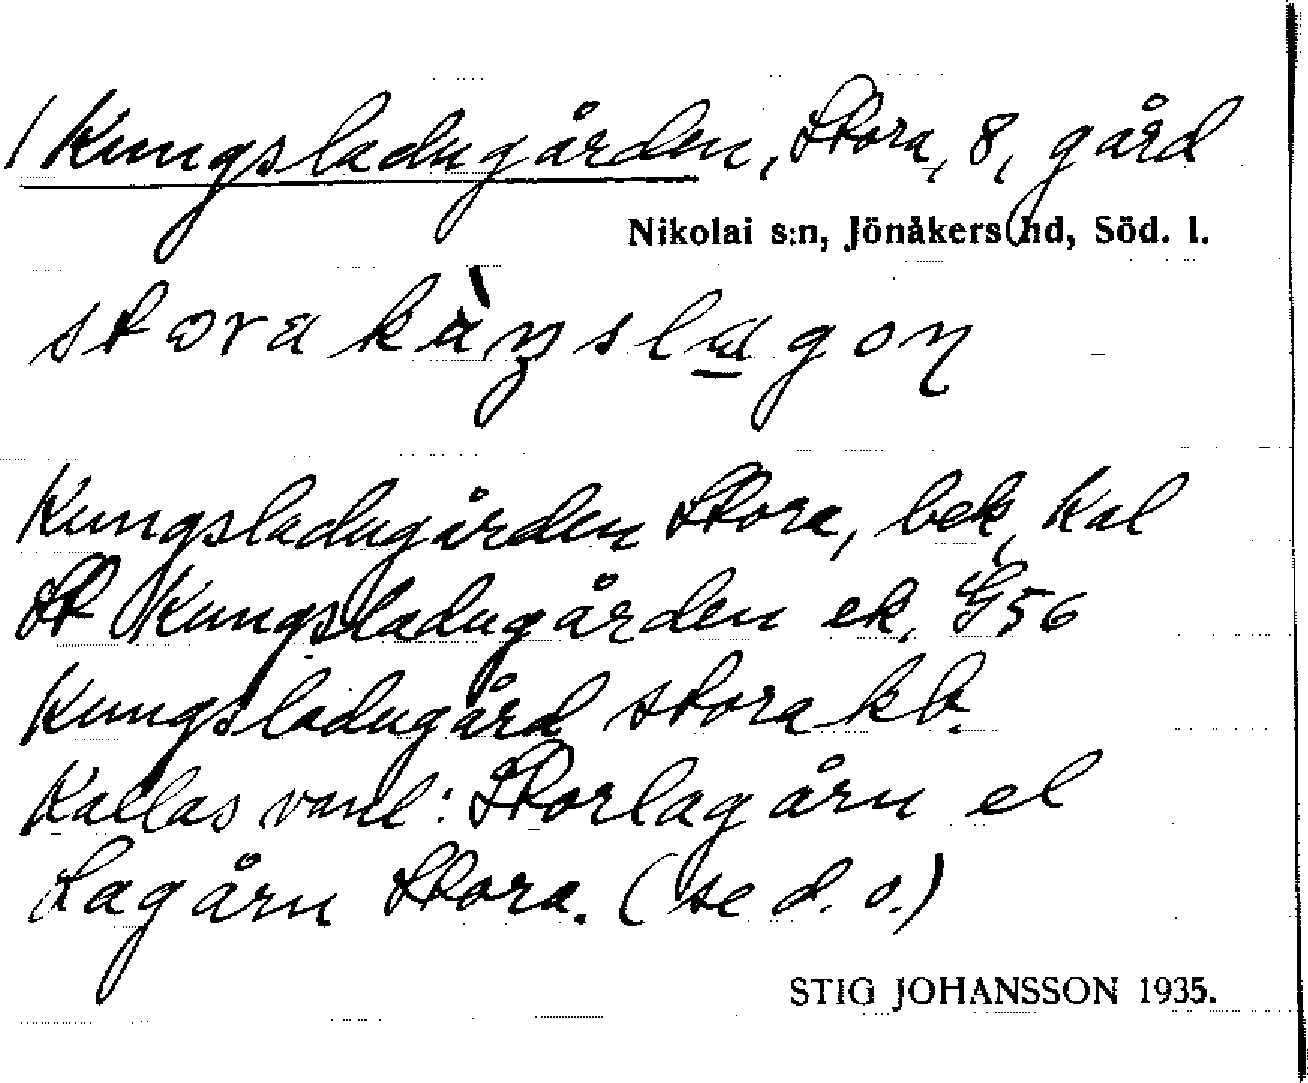 1 Kungsladugården, Stora, 8, gård
Nikolai s:n, Jönåkers hd, Söd. l.
Kungsladugården Stora, bek, kal
St Kungsladugården ek, G56
Kungsladugård stora kb.
Kallas vanl: Storlagårn el
Lagårn Stora. (se d. o.)
STIG JOHANSSON 1935.